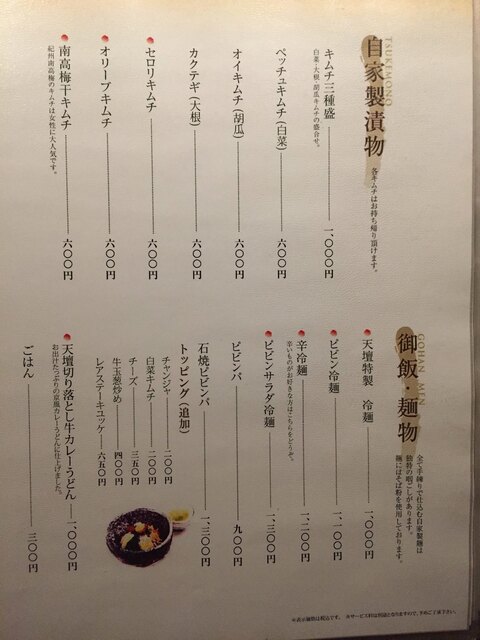 TSUKEMONO
自家製漬物
各キムチはお持ち帰り頂けます。
キムチ三種盛 一、〇〇〇円
白菜・大根・胡瓜キムチの盛合せ。
ペッチュキムチ（白菜） 六〇〇円
オイキムチ（胡瓜） 六〇〇円
カクテギ（大根） 六〇〇円
セロリキムチ 六〇〇円
オリーブキムチ 六〇〇円
南高梅干キムチ 六〇〇円
紀州南高梅のキムチは女性に大人気です。
GOHAN MEN
御飯・麺物
全て手練りで仕込む自家製麺は
独特の咽ごしがあります。
麺にはそば粉を使用しております。
天壇特製 冷麺 一、〇〇〇円
ビビン冷麺 一、一〇〇円
辛冷麺 一、二〇〇円
辛いものがお好きな方はこちらをどうぞ。
ビビンサラダ冷麺 一、三〇〇円
ビビンバ 九〇〇円
石焼ビビンバ 一、三〇〇円
トッピング（追加）
チャンジャ 二〇〇円
白菜キムチ 二〇〇円
チーズ 三五〇円
牛玉葱炒め 四〇〇円
レアステーキユッケ 六五〇円
天壇切り落とし牛カレーうどん 一、〇〇〇円
お出汁たっぷりの京風カレーうどんに仕上げました。
ごはん 三〇〇円
※表示価格は税込です。 ※サービス料は別途となりますので、予めご了承下さい。